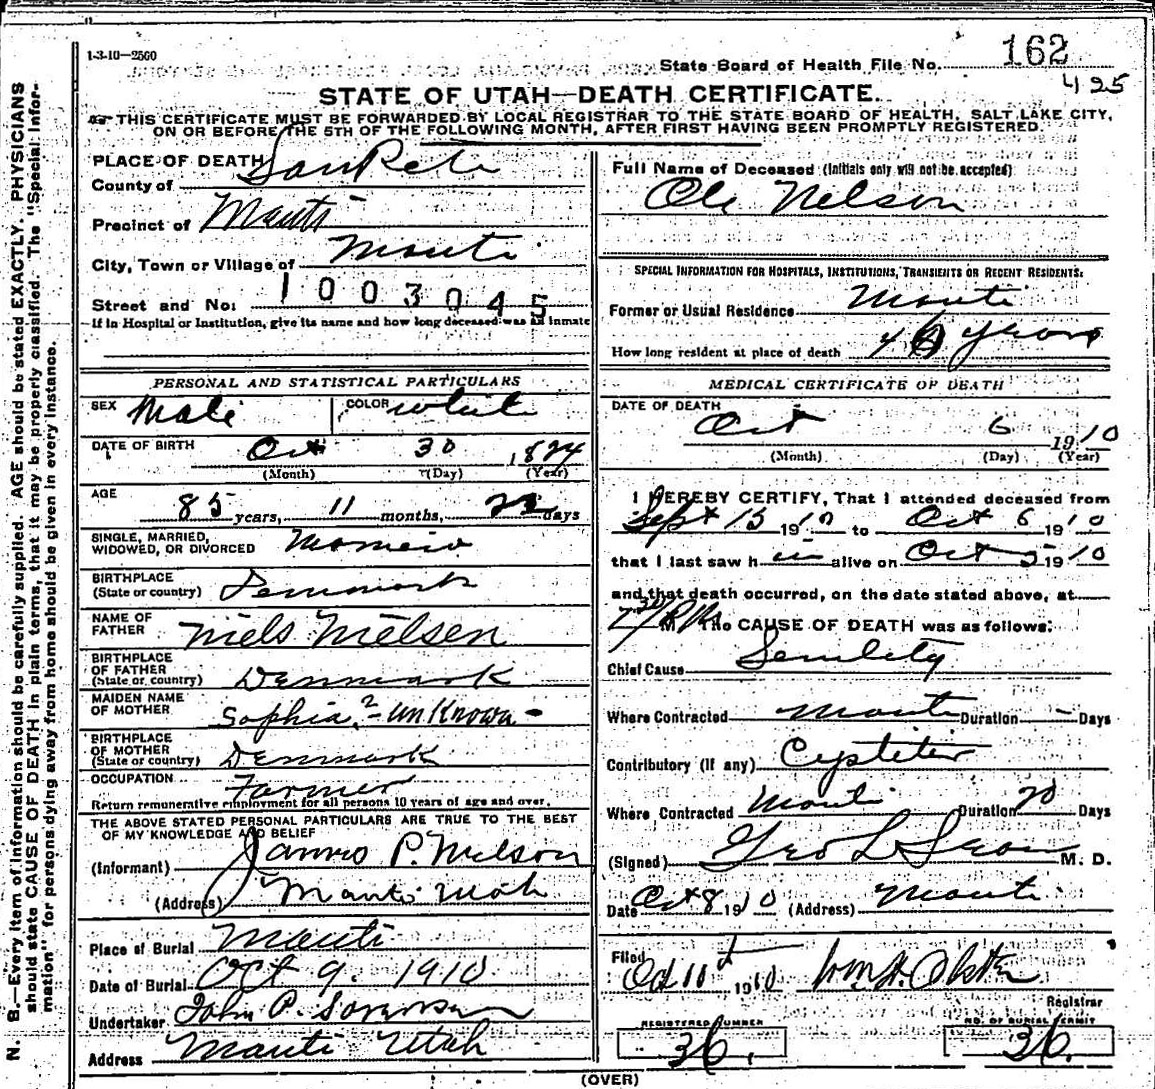 1-3-10—2560
State Board of Health File No. 162
425
STATE OF UTAH—DEATH CERTIFICATE.
THIS CERTIFICATE MUST BE FORWARDED BY LOCAL REGISTRAR TO THE STATE BOARD OF HEALTH, SALT LAKE CITY,
ON OR BEFORE THE 5TH OF THE FOLLOWING MONTH, AFTER FIRST HAVING BEEN PROMPTLY REGISTERED.
N. B.—Every item of information should be carefully supplied. AGE should be stated EXACTLY. PHYSICIANS
should state CAUSE OF DEATH in plain terms, that it may be properly classified. The "Special Infor-
mation" for persons dying away from home should be given in every instance.
PLACE OF DEATH
County of SanPete
Precinct of Manti
City, Town or Village of Manti
Street and No: 1003045
If in Hospital or Institution, give its name and how long deceased was an inmate
PERSONAL AND STATISTICAL PARTICULARS
SEX Male COLOR white
DATE OF BIRTH Oct 30 1824
(Month) (Day) (Year)
AGE
85 years, 11 months, days
SINGLE, MARRIED,
WIDOWED, OR DIVORCED
BIRTHPLACE
(State or country) Denmark
NAME OF
FATHER Niels Nielsen
BIRTHPLACE
OF FATHER
(State or country) Denmark
MAIDEN NAME
OF MOTHER Sophia ?-unKnown-
BIRTHPLACE
OF MOTHER
(State or country) Denmark
OCCUPATION Farmer
Return remunerative employment for all persons 10 years of age and over.
THE ABOVE STATED PERSONAL PARTICULARS ARE TRUE TO THE BEST
OF MY KNOWLEDGE AND BELIEF
(Informant) James P. Nielson
(Address) Manti Utah
Place of Burial Manti
Date of Burial Oct 9. 1910
Undertaker John P. Sorensen
Address Manti Utah
Full Name of Deceased (Initials only will not be accepted)
Ole Nelson
SPECIAL INFORMATION FOR HOSPITALS, INSTITUTIONS, TRANSIENTS OR RECENT RESIDENTS:
Former or Usual Residence Manti
How long resident at place of death years
MEDICAL CERTIFICATE OF DEATH
DATE OF DEATH
Oct 6 1910
(Month) (Day) (Year)
I HEREBY CERTIFY, That I attended deceased from
Sept 15 1910 to Oct 6 1910
that I last saw h im alive on Oct 5 1910
and that death occurred, on the date stated above, at
7 30 P M. The CAUSE OF DEATH was as follows:
Chief Cause Senility
Where Contracted Manti Duration - Days
Contributory (if any) Cystitis
Where Contracted Manti Duration 20 Days
(Signed) Geo L M. D.
Date Oct 8 1910 (Address) Manti
Filed
Oct 11 1910 Wm H.
Registrar
REGISTERED NUMBER
36.
NO. OF BURIAL PERMIT
36.
(OVER)